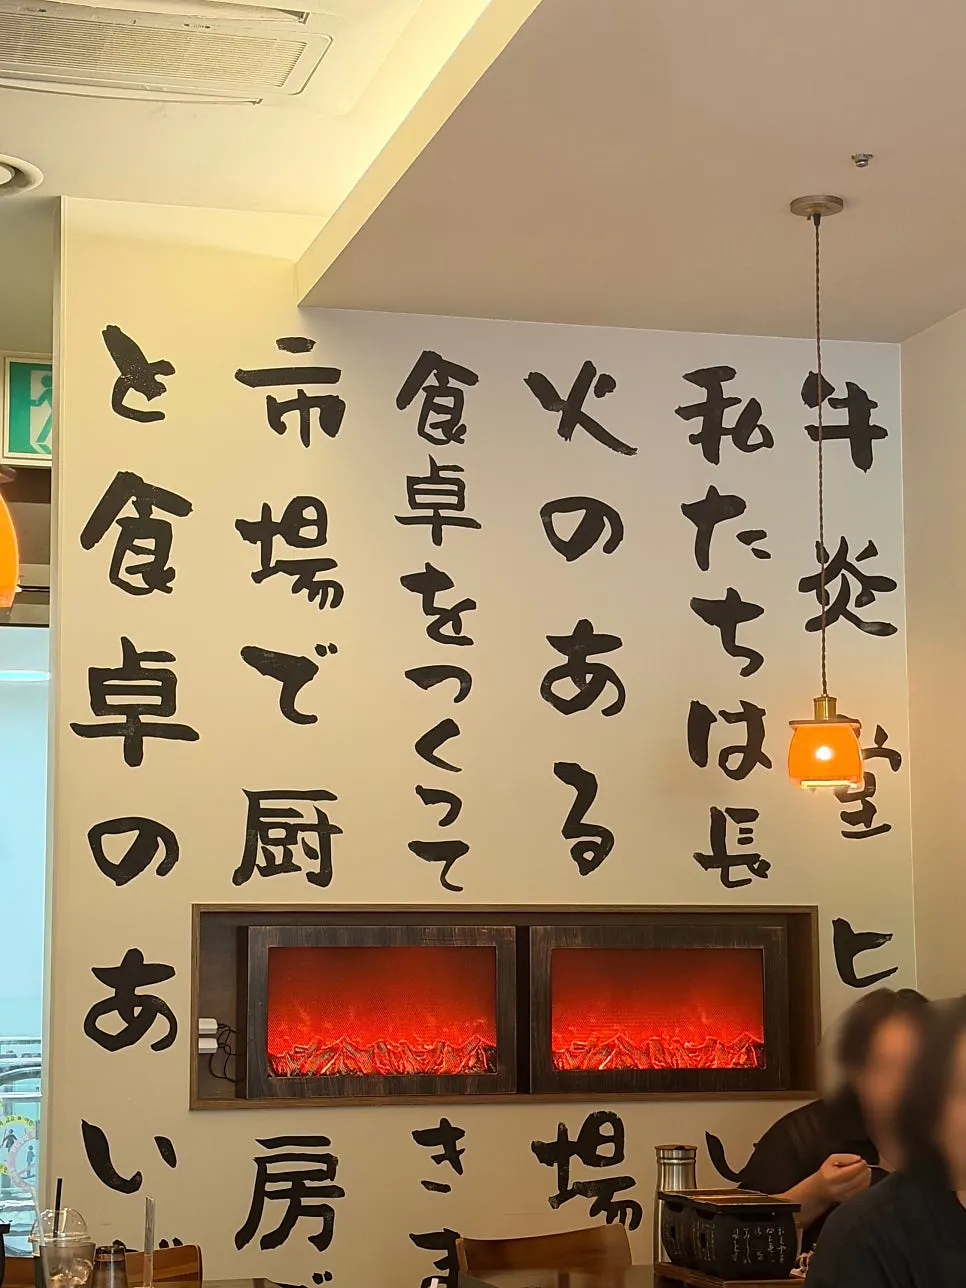 牛炎室ヒ
私たちは長い
火のある場
食卓をつくってきま
市場で厨房で
と食卓のあい